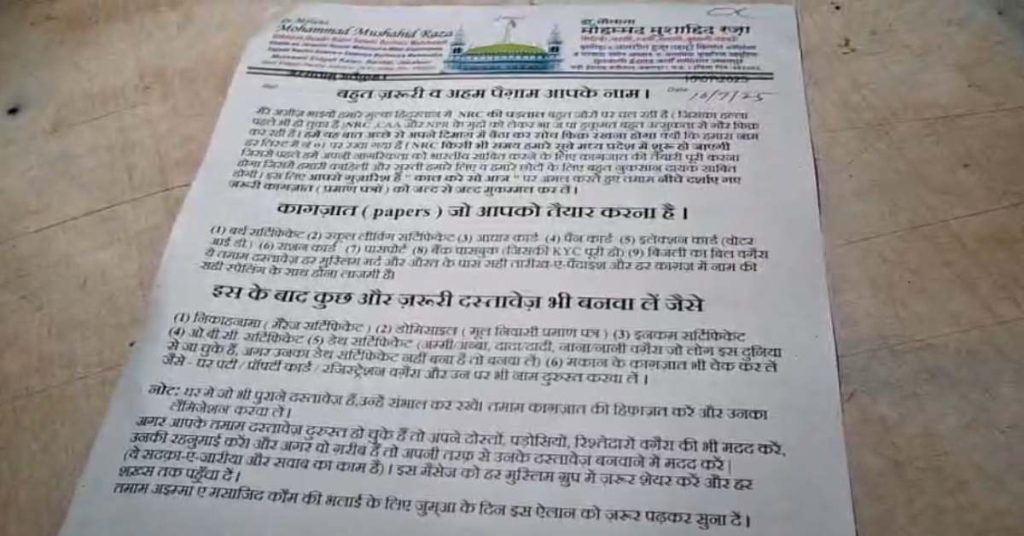 Dr. Maulana
Mohammad Mushahid Raza
डा. मौलाना
मोहम्मद मुशाहिद रज़ा
Date 16/7/25
बहुत ज़रूरी व अहम पैग़ाम आपके नाम।
मेरे अज़ीज़ भाइयों हमारे मुल्क हिंदुस्तान में NRC की पड़ताल बहुत जोरों पर चल रही है ( जिसका हल्ला
पहले भी हो चुका है )NRC ,CAA और NPR के मुद्दों को लेकर भा ज पा हुकूमत बहुत उत्सुकता से गौर फिक्र
कर रही है। हमें यह बात अच्छे से अपने दिमाग में बैठा कर सोच फिक्र रखना होगा क्यों कि हमारा नाम
हर लिस्ट में नं 01 पर रखा गया है। NRC किसी भी समय हमारे सूबे मध्य प्रदेश में शुरू हो जाएगी
जिससे पहले हमें अपनी नागरिकता को भारतीय साबित करने के लिए कागजात की तैयारी पूरी करना
होगा जिसमें हमारी काहिली और सुस्ती हमारे लिए व हमारे छोटों के लिए बहुत नुकसान दायक साबित
होगी। इस लिए आपसे गुज़ारिश है " काल करे सो आज " पर अमल करते हुए तमाम नीचे दर्शाए गए
ज़रूरी कागज़ात ( प्रमाण पत्रों ) को जल्द से जल्द मुकम्मल कर लें।
कागज़ात ( papers ) जो आपको तैयार करना है ।
(1) बर्थ सर्टिफिकेट (2) स्कूल लीविंग सर्टिफिकेट (3) आधार कार्ड (4) पैन कार्ड (5) इलेक्शन कार्ड (वोटर
आई डी.) (6) राशन कार्ड (7) पासपोर्ट (8) बैंक पासबुक (जिसकी KYC पूरी हो) (9) बिजली का बिल वगैरा
ये तमाम दस्तावेज़ हर मुस्लिम मर्द और औरत के पास सही तारीख-ए-पैदाइश और हर कागज़ में नाम की
सही स्पेलिंग के साथ होना लाजमी है।
इस के बाद कुछ और ज़रूरी दस्तावेज़ भी बनवा लें जैसे
(1) निकाहनामा ( मैरेज सर्टिफिकेट ) (2) डोमिसाइल ( मूल निवासी प्रमाण पत्र ) (3) इनकम सर्टिफिकेट
(4) ओ.बी.सी. सर्टिफिकेट (5) डेथ सर्टिफिकेट (अम्मी/अब्बा, दादा/दादी, नाना/नानी वगैरा जो लोग इस दुनिया
से जा चुके हैं, अगर उनका डेथ सर्टिफिकेट नहीं बना है तो बनवा लें) (6) मकान के कागज़ात भी चेक कर लें
जैसे - घर पट्टी / प्रॉपर्टी कार्ड / रजिस्ट्रेशन वगैरा और उन पर भी नाम दुरुस्त करवा लें ।
नोट: घर में जो भी पुराने दस्तावेज़ हैं,उन्हें संभाल कर रखें। तमाम कागज़ात की हिफाज़त करें और उनका
लैमिनेशन करवा लें।
अगर आपके तमाम दस्तावेज़ दुरुस्त हो चुके हैं तो अपने दोस्तों, पड़ोसियों, रिश्तेदारों वगैरा की भी मदद करें,
उनकी रहनुमाई करें। और अगर वो ग़रीब हैं तो अपनी तरफ़ से उनके दस्तावेज़ बनवाने में मदद करें|
(ये सदक़ा-ए-जारीया और सवाब का काम है)। इस मैसेज को हर मुस्लिम ग्रुप में ज़रूर शेयर करें और हर
शख़्स तक पहुँचा दें।
तमाम अइम्मा ए मसाजिद क़ौम की भलाई के लिए जुम्आ के दिन इस ऐलान को ज़रूर पढ़कर सुना दें।